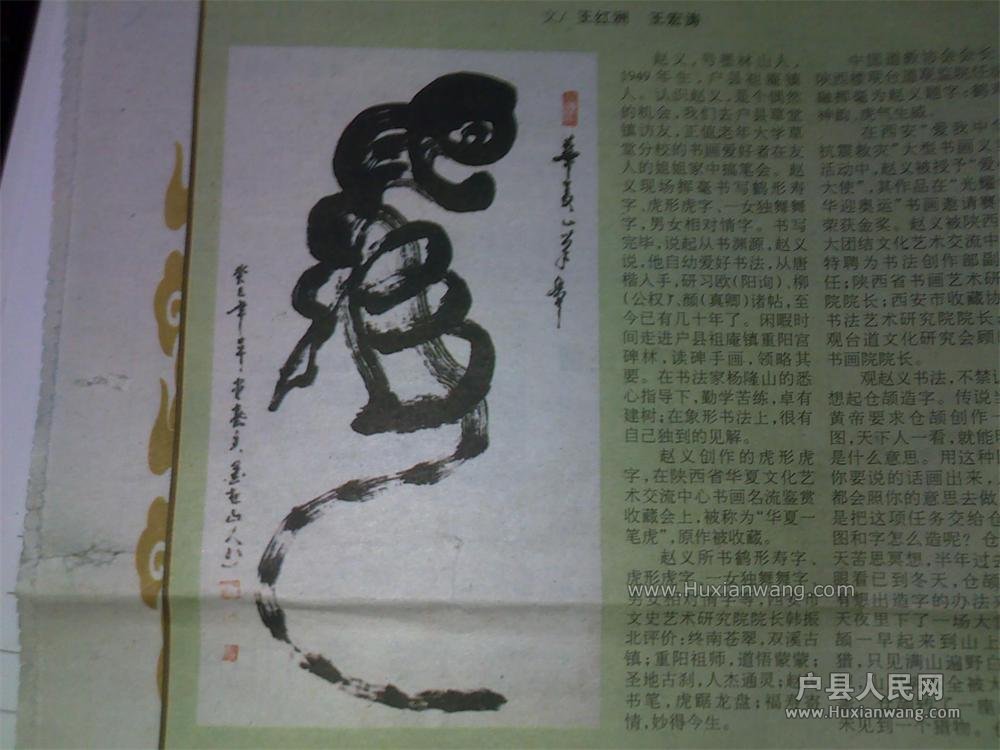 文/ 王红洲 王宏涛
华夏一笔虎
赵义，号墨林山人，
1949年生，户县祖庵镇
人。认识赵义，是个偶然
的机会，我们去户县草堂
镇访友，正值老年大学草
堂分校的书画爱好者在友
人的姐姐家中搞笔会。赵
义现场挥毫书写鹤形寿
字、虎形虎字、一女独舞舞
字，男女相对情字。书写
完毕，说起从书渊源，赵义
说，他自幼爱好书法，从唐
楷入手，研习欧(阳询)、柳
(公权)、颜(真卿)诸帖，至
今已有几十年了。闲暇时
间走进户县祖庵镇重阳宫
碑林，读碑手画，领略其
要。在书法家杨隆山的悉
心指导下，勤学苦练，卓有
建树；在象形书法上，很有
自己独到的见解。
赵义创作的虎形虎
字，在陕西省华夏文化艺
术交流中心书画名流鉴赏
收藏会上，被称为“华夏一
笔虎”，原作被收藏。
赵义所书鹤形寿字、
虎形虎字、一女独舞舞字、
男女相对情字等，西安市
文史艺术研究院院长韩振
北评价：终南苍翠，双溪古
镇；重阳祖师，道悟蒙蒙；
圣地古刹，人杰通灵；赵
书笔，虎踞龙盘；福
情，妙得今生。
中国道教协会会长、
陕西楼观台道观监院任
融挥毫为赵义题字：鹤
神韵，虎气生威。
在西安“爱我中
抗震救灾”大型书画义
活动中，赵义被授予“爱
大使”，其作品在“光耀
华迎奥运”书画邀请赛
荣获金奖。赵义被陕西
大团结文化艺术交流中
特聘为书法创作部副
任；陕西省书画艺术研
院院长；西安市收藏协
书法艺术研究院院长
观台道文化研究会顾
书画院院长。
观赵义书法，不禁让
想起仓颉造字。传说
黄帝要求仓颉创作一
图，天下人一看，就能
是什么意思。用这种
你要说的话画出来，
都会照你的意思去做
是把这项任务交给仓
图和字怎么造呢？仓
天苦思冥想，半年过去
眼看已到冬天，仓颉
有想出造字的办法
天夜里下了一场大
颉一早起来到山上
猎，只见满山遍野白
全被大
一座
未见到一个猎物。
www.Huxianwang.com
户县人民网
www.Huxianwang.com